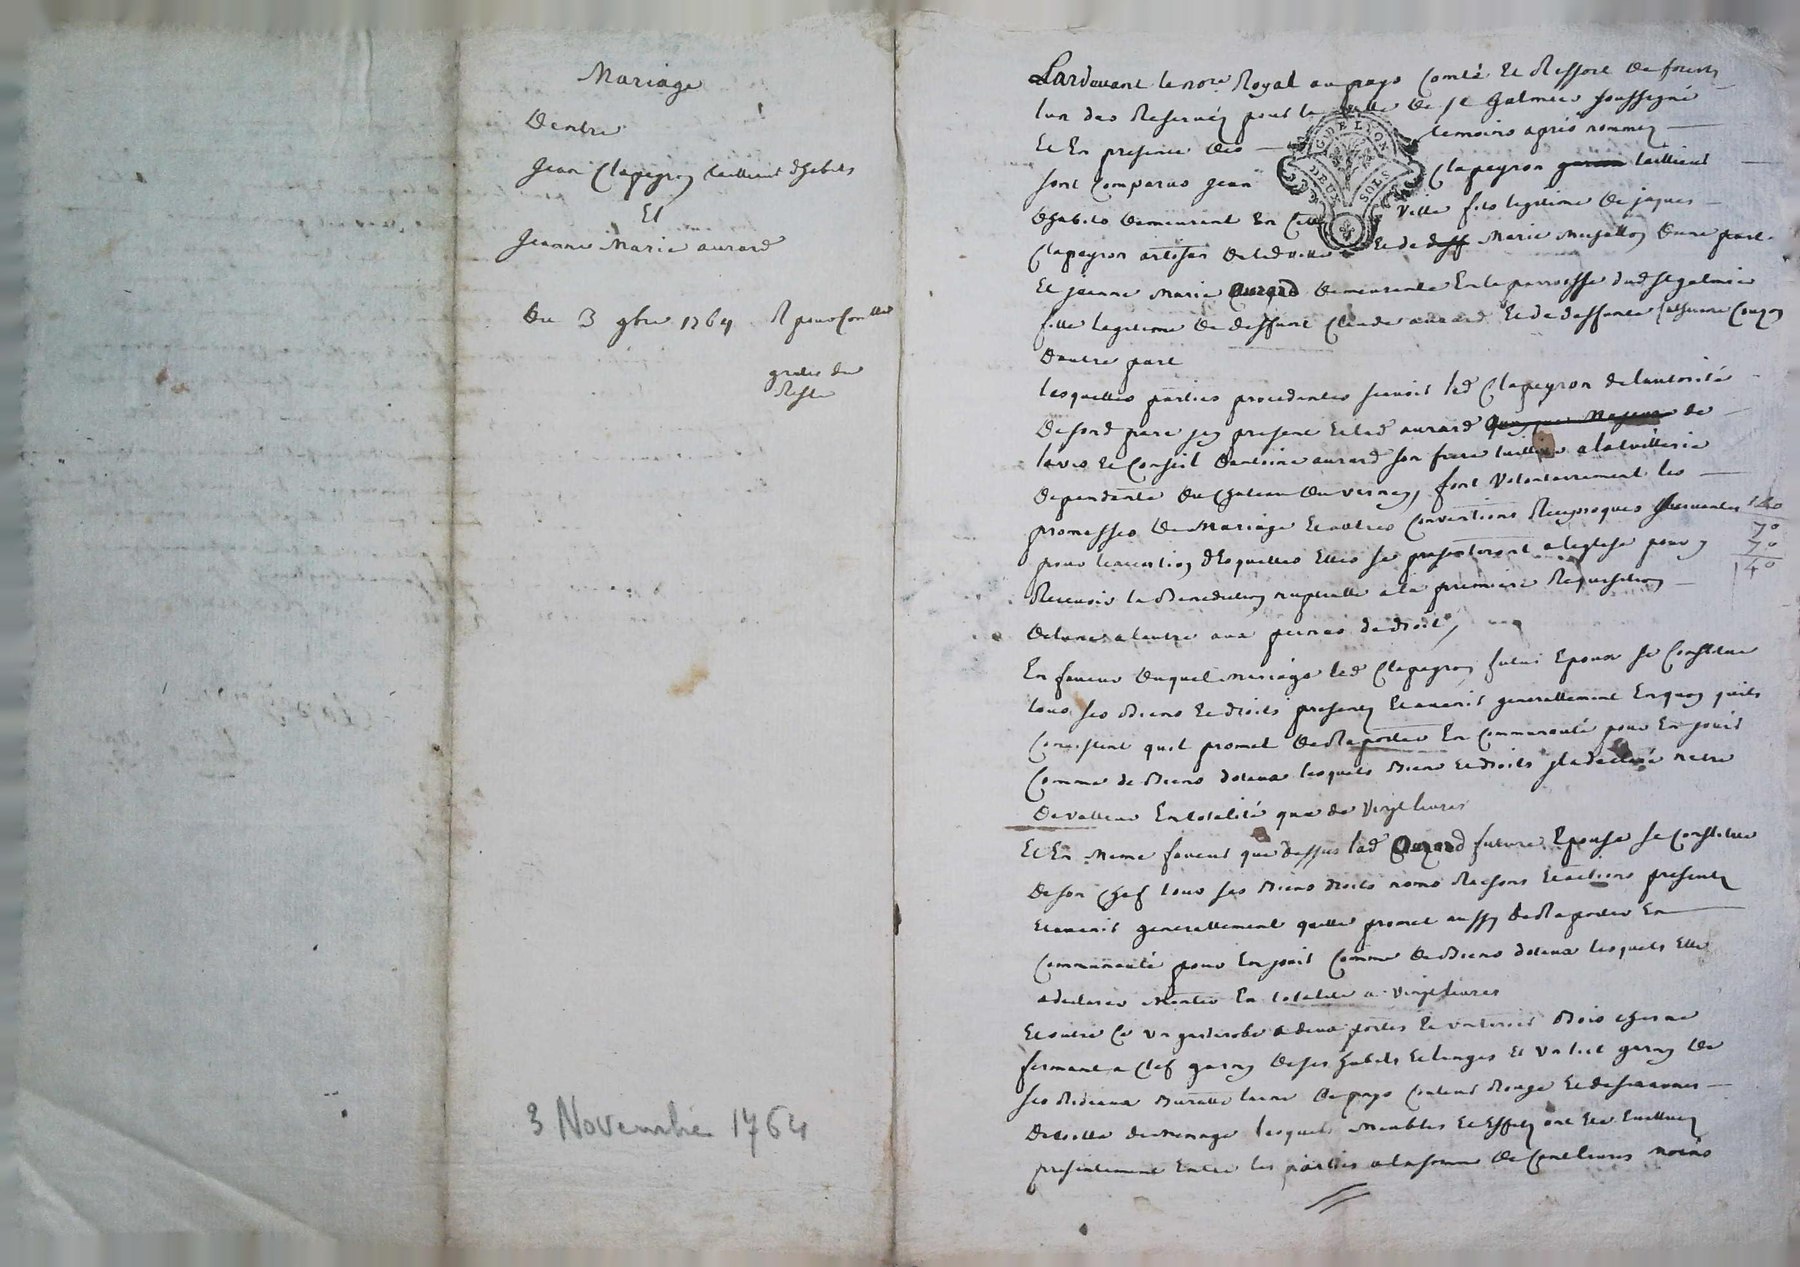 Mariage
Dentre
Jean Clapeyron taillieur dhabits
Et
Jeanne Marie aurard
Du 3 9bre 1764
gratis du
Reste
3 Novembre 1764
Pardevant le nore Royal au pays Comté Et Ressort de forests
lun des Reservés pour la ville de st Galmier soussigné
Et En presence des temoins aprés nommés
sont Comparus jean Clapeyron taillieur
G. DE LYON
DEUX SOLS
dhabits demeurant En cette ville fils legitime de jaques
Clapeyron artisan de lad ville Et de Marie dune part
Et jeanne Marie aurard demeurante En la parroisse dud st galmier
fille legitime de deffunt Claude aurard Et de deffunte Catherine
dautre part
lesquelles parties procedantes sçavoir led Clapeyron de lautorité
de sond pere jcy present Et lad aurard de
lavis Et Conseil dantoine aurard son frere
dependante du Chateau du verney, font Volontairement les
promesses de Mariage Et autres Conventions Reciproques suivantes
140
70
70
140
pour lexecution desquelles Elles se presenteront a leglise pour y
Recevoir la Benediction nuptialle a la premiere Requisition
de lune a lautre aux peines de droit,
En faveur duquel mariage led Clapeyron futur Epoux se Constitue
tous ses Biens Et droits presents Et avenir generallement En quoy quils
Consistent quil promet de Raporter En Communauté pour En jouir
Comme de Biens dotaux lesquels Biens Et droits jl a declaré netre
de valleur En totalité que de Vingt livres
Et En Meme faveur que dessus lad aurard future Epouse se Constitue
de son Chef tous ses Biens droits noms Raisons Et actions presents
Et avenir generallement quelle promet aussy de Raporter En
Communauté pour En jouir Comme de Biens dotaux lesquels Elle
a declarer Monter En totalité a Vingt livres
Et outre Ce Un garderobe a deux portes Et un tiroir Bois
fermant a Clef garny de ses habits Et linges Et Un lict garny de
ses Rideaux du pays Couleur Rouge Et
de toille de Menage lesquels Meubles Et Effets ont Eté
presentement Entre les parties a la somme de Cent livres moins